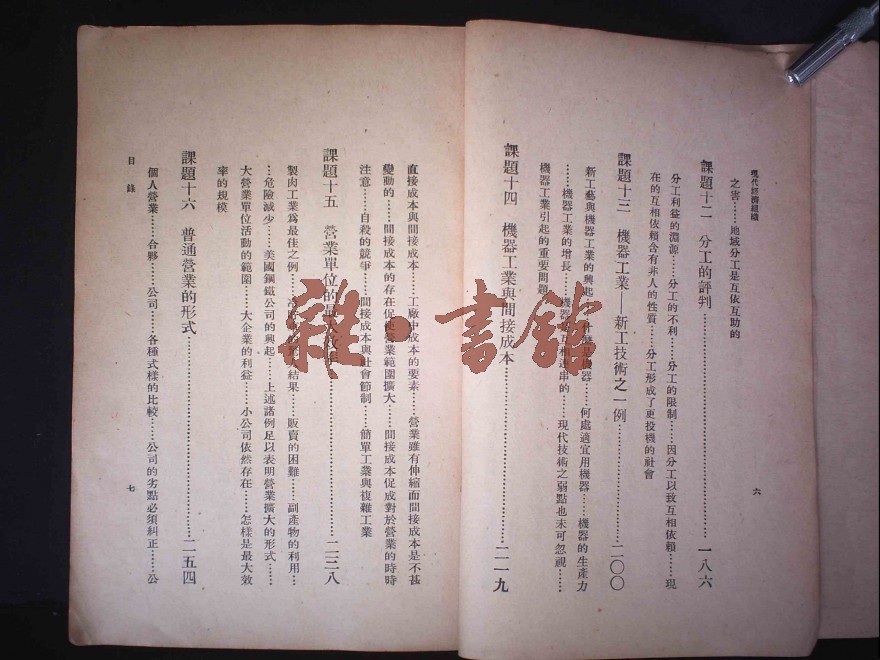 現代經濟組織
六
之害……地域分工是互依互助的
課題十二 分工的評判……一八六
分工利益的淵源……分工的不利……分工的限制……因分工以致互相依賴……現
在的互相依賴含有非人的性質……分工形成了更投機的社會
課題十三 機器工業——新工技術之一例……二〇〇
新工藝與機器工業的興起……機器……何處適宜用機器……機器的生產力
……機器工業的增長……機器是互相連串的……現代技術之弱點也未可忽視……
機器工業引起的重要問題
課題十四 機器工業與間接成本……二一九
直接成本與間接成本……工廠中成本的要素……營業雖有伸縮而間接成本是不甚
變動的……間接成本的存在促使營業範圍擴大……間接成本促成對於營業的時時
注意……自殺的競爭……間接成本與社會節制……簡單工業與複雜工業
課題十五 營業單位的……二三八
製肉工業為最佳之例……結果……販賣的困難……副產物的利用……
…危險減少……美國鋼鐵公司的興起……上述諸例足以表明營業擴大的形式……
大營業單位活動的範圍……大企業的利益……小公司依然存在……怎樣是最大效
率的規模
課題十六 普通營業的形式……二五四
個人營業……合夥……公司……各種式樣的比較……公司的劣點必須糾正……公
目錄
七
雜·書館